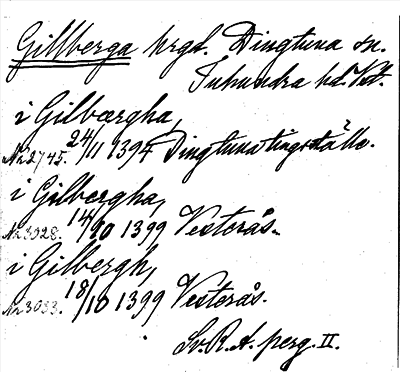 Gillberga hrgd. Dingtuna sn.
Tuhundra hd. Vstm.
i Gilbærgha,
Nr 2745. 24/11 1394 Dingtuna tingställe.
i Gilbergha,
Nr 3028. 14/10 1399 Vesterås.
i Gilbergh,
Nr 3033. 18/10 1399 Vesterås.
Sv. R. A. perg. II.